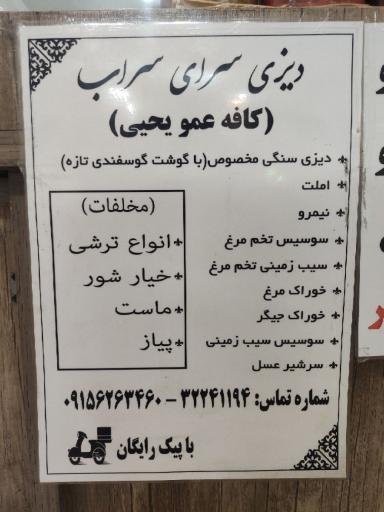 دیزی سرای سراب
(کافه عمو یحیی)
دیزی سنگی مخصوص(با گوشت گوسفندی تازه)
املت
نیمرو
سوسیس تخم مرغ
سیب زمینی تخم مرغ
خوراک مرغ
خوراک جیگر
سوسیس سیب زمینی
سرشیر عسل
(مخلفات)
انواع ترشی
خیار شور
ماست
پیاز
شماره تماس: ۳۲۲۴۱۱۹۴ - ۰۹۱۵۶۲۶۳۴۶۰
با پیک رایگان